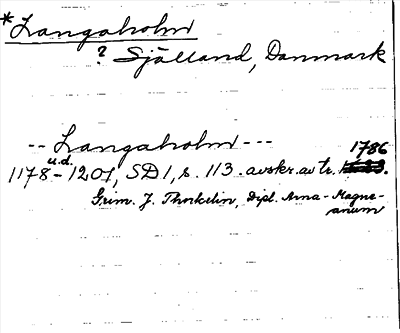 *Langaholm
? Själland, Danmark
-- Langaholm ---
u.d. 1786
1178-1201, SD 1, s. 113. avskr. av tr.
Grim. J. Thorkelin, Dipl. Arna-Magne-
anum